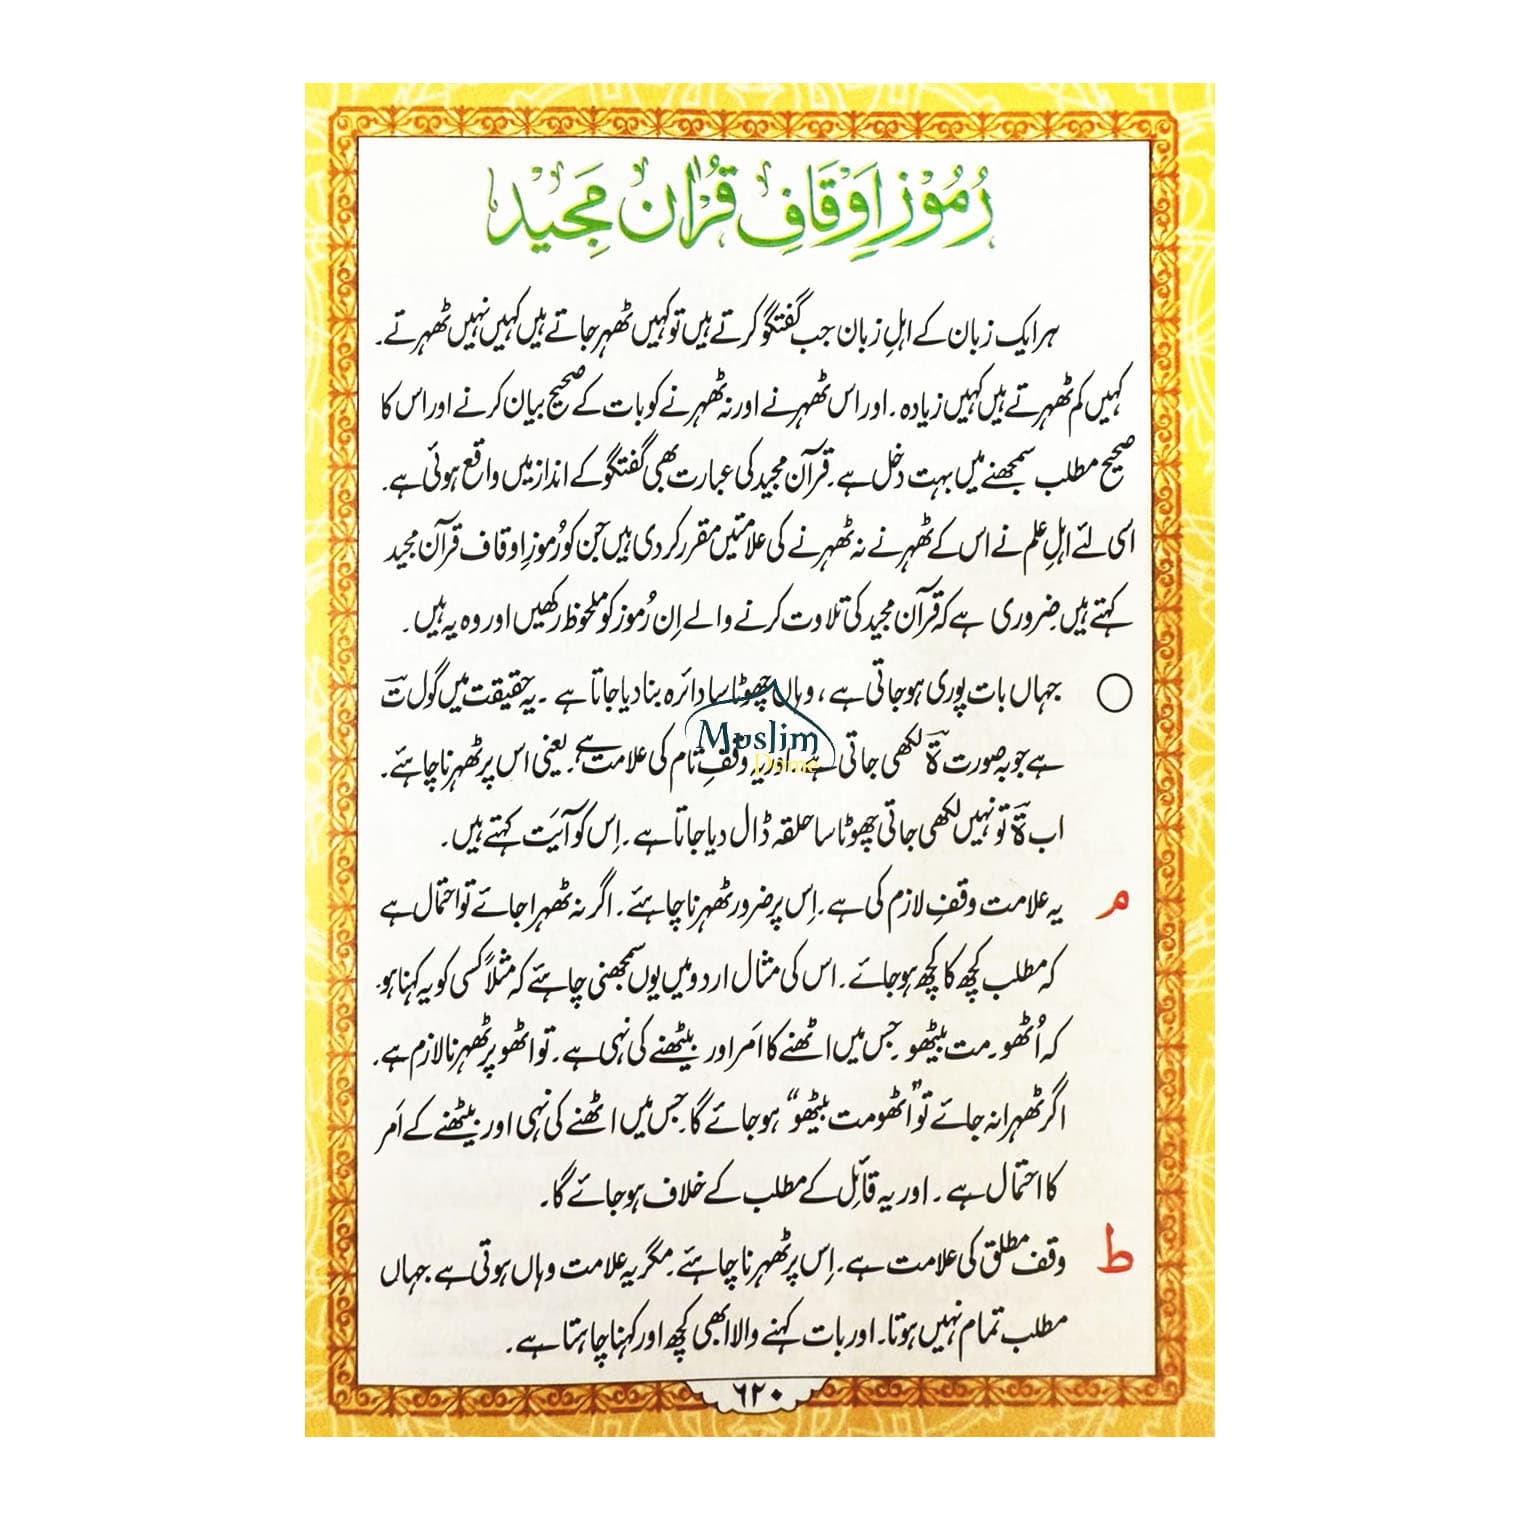 رُمُوْزِ اَوْقَافِ قُرْاٰن مَجِیْد
ہر ایک زبان کے اہلِ زبان جب گفتگو کرتے ہیں تو کہیں ٹھہر جاتے ہیں کہیں نہیں ٹھہرتے۔
کہیں کم ٹھہرتے ہیں کہیں زیادہ۔ اور اس ٹھہرنے اور نہ ٹھہرنے کو بات کے صحیح بیان کرنے اور اس کا
صحیح مطلب سمجھنے میں بہت دخل ہے۔ قرآن مجید کی عبارت بھی گفتگو کے انداز میں واقع ہوئی ہے۔
اسی لئے اہلِ علم نے اس کے ٹھہرنے نہ ٹھہرنے کی علامتیں مقرر کر دی ہیں جن کو رُموزِ اوقاف قرآن مجید
کہتے ہیں۔ ضروری ہے کہ قرآن مجید کی تلاوت کرنے والے اِن رُموز کو ملحوظ رکھیں اور وہ یہ ہیں۔
○ جہاں بات پوری ہو جاتی ہے، وہاں چھوٹا سا دائرہ بنا دیا جاتا ہے۔ یہ حقیقت میں گول ت
ہے جو بہ صورت ۃ لکھی جاتی ہے۔ اور یہ وقفِ تام کی علامت ہے۔ یعنی اس پر ٹھہرنا چاہئے۔
اب ۃ تو نہیں لکھی جاتی چھوٹا سا حلقہ ڈال دیا جاتا ہے۔ اِس کو آیَت کہتے ہیں۔
م یہ علامت وقفِ لازم کی ہے۔ اِس پر ضرور ٹھہرنا چاہئے۔ اگر نہ ٹھہرا جائے تو احتمال ہے
کہ مطلب کچھ کا کچھ ہو جائے۔ اس کی مثال اردو میں یوں سمجھنی چاہئے کہ مثلاً کسی کو یہ کہنا ہو۔
کہ اُٹھو۔ مت بیٹھو۔ جس میں اٹھنے کا اَمر اور بیٹھنے کی نہی ہے۔ تو اٹھو پر ٹھہرنا لازم ہے۔
اگر ٹھہرا نہ جائے تو ”اٹھو مت بیٹھو“ ہو جائے گا۔ جس میں اٹھنے کی نہی اور بیٹھنے کے اَمر
کا احتمال ہے۔ اور یہ قائل کے مطلب کے خلاف ہو جائے گا۔
ط وقف مطلق کی علامت ہے۔ اِس پر ٹھہرنا چاہئے۔ مگر یہ علامت وہاں ہوتی ہے جہاں
مطلب تمام نہیں ہوتا۔ اور بات کہنے والا ابھی کچھ اور کہنا چاہتا ہے۔
٦٢٠
Muslim
Dome